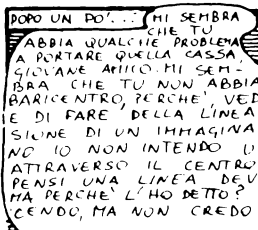 DOPO UN PO'...
MI SEMBRA
CHE TU
ABBIA QUALCHE PROBLEMA
A PORTARE QUELLA CASSA,
GIOVANE AMICO. MI SEM-
BRA CHE TU NON ABBIA
BARICENTRO, PERCHE', VED
E DI FARE DELLA LINEA
SIONE DI UN IMMAGINA
NO IO NON INTENDO
ATTRAVERSO IL CENTRO
PENSI UNA LINEA DEV
MA PERCHE' L'HO DETTO?
CENDO, MA NON CREDO